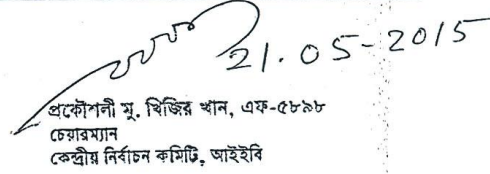 21.05-2015
প্রকৌশলী মু. খিজির খান, এফ-৫৮৯৮
চেয়ারম্যান
কেন্দ্রীয় নির্বাচন কমিটি, আইইবি